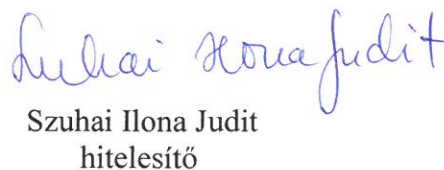 Szuhai Ilona Judit
Szuhai Ilona Judit
hitelesítő